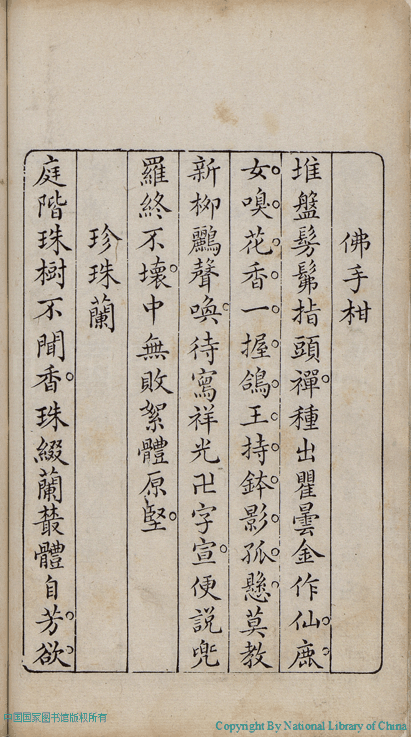 佛手柑
堆盤髣髴指頭禪種出瞿曇金作仙鹿
女嗅花香一握鴿王持鉢影孤懸莫教
新柳鸝聲喚待寫祥光卍字宣便說兜
羅終不壞中無敗絮體原堅
珍珠蘭
庭階珠樹不聞香珠綴蘭叢體自芳欲
中国国家图书馆版权所有
Copyright By National Library of China